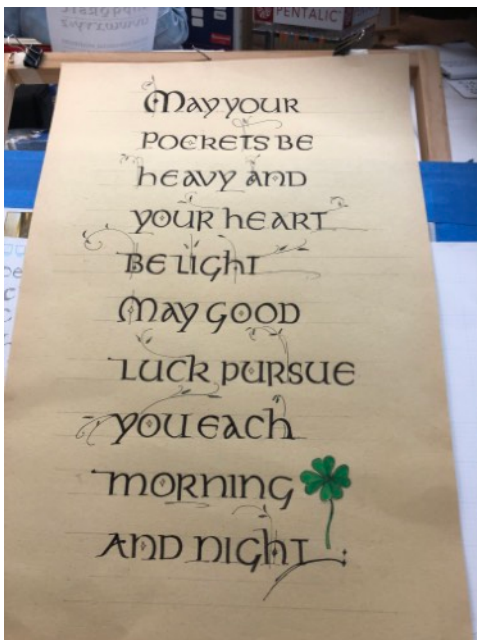 PENTALIC
May your
pockets be
heavy and
your heart
be light
May good
luck pursue
you each
morning
and night.